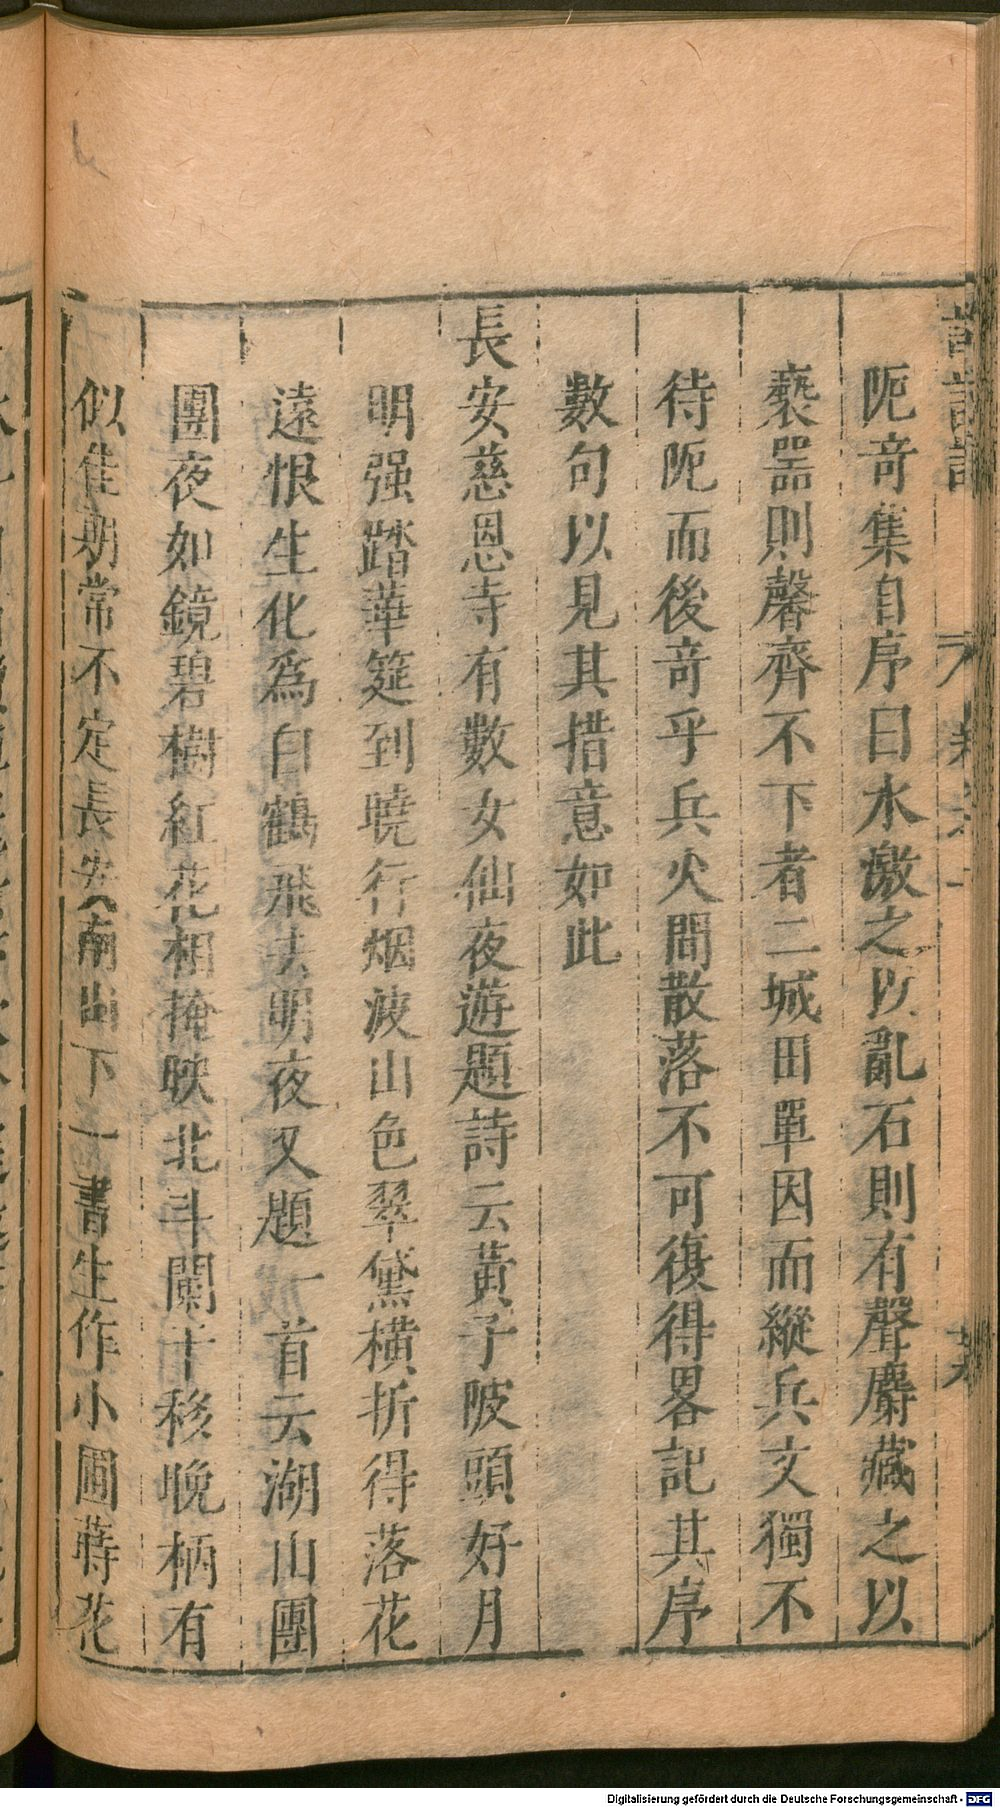 阨竒集自序曰水激之以亂石則有聲麝藏之以
褻噐則馨齊不下者二城田單因而縱兵文獨不
待阨而後竒乎兵火間散落不可復得畧記其序
數句以見其措意如此
長安慈恩寺有數女仙夜遊題詩云黃子陂頭好月
明强踏華筵到曉行烟波山色翠黛橫折得落花
遠恨生化為白鶴飛去明夜又題一首云湖山團
團夜如鏡碧樹紅花相掩映北斗闌干移曉柄有
似佳期常不定長安南山下一書生作小圃蒔花
Digitalisierung gefördert durch die Deutsche Forschungsgemeinschaft - DFG